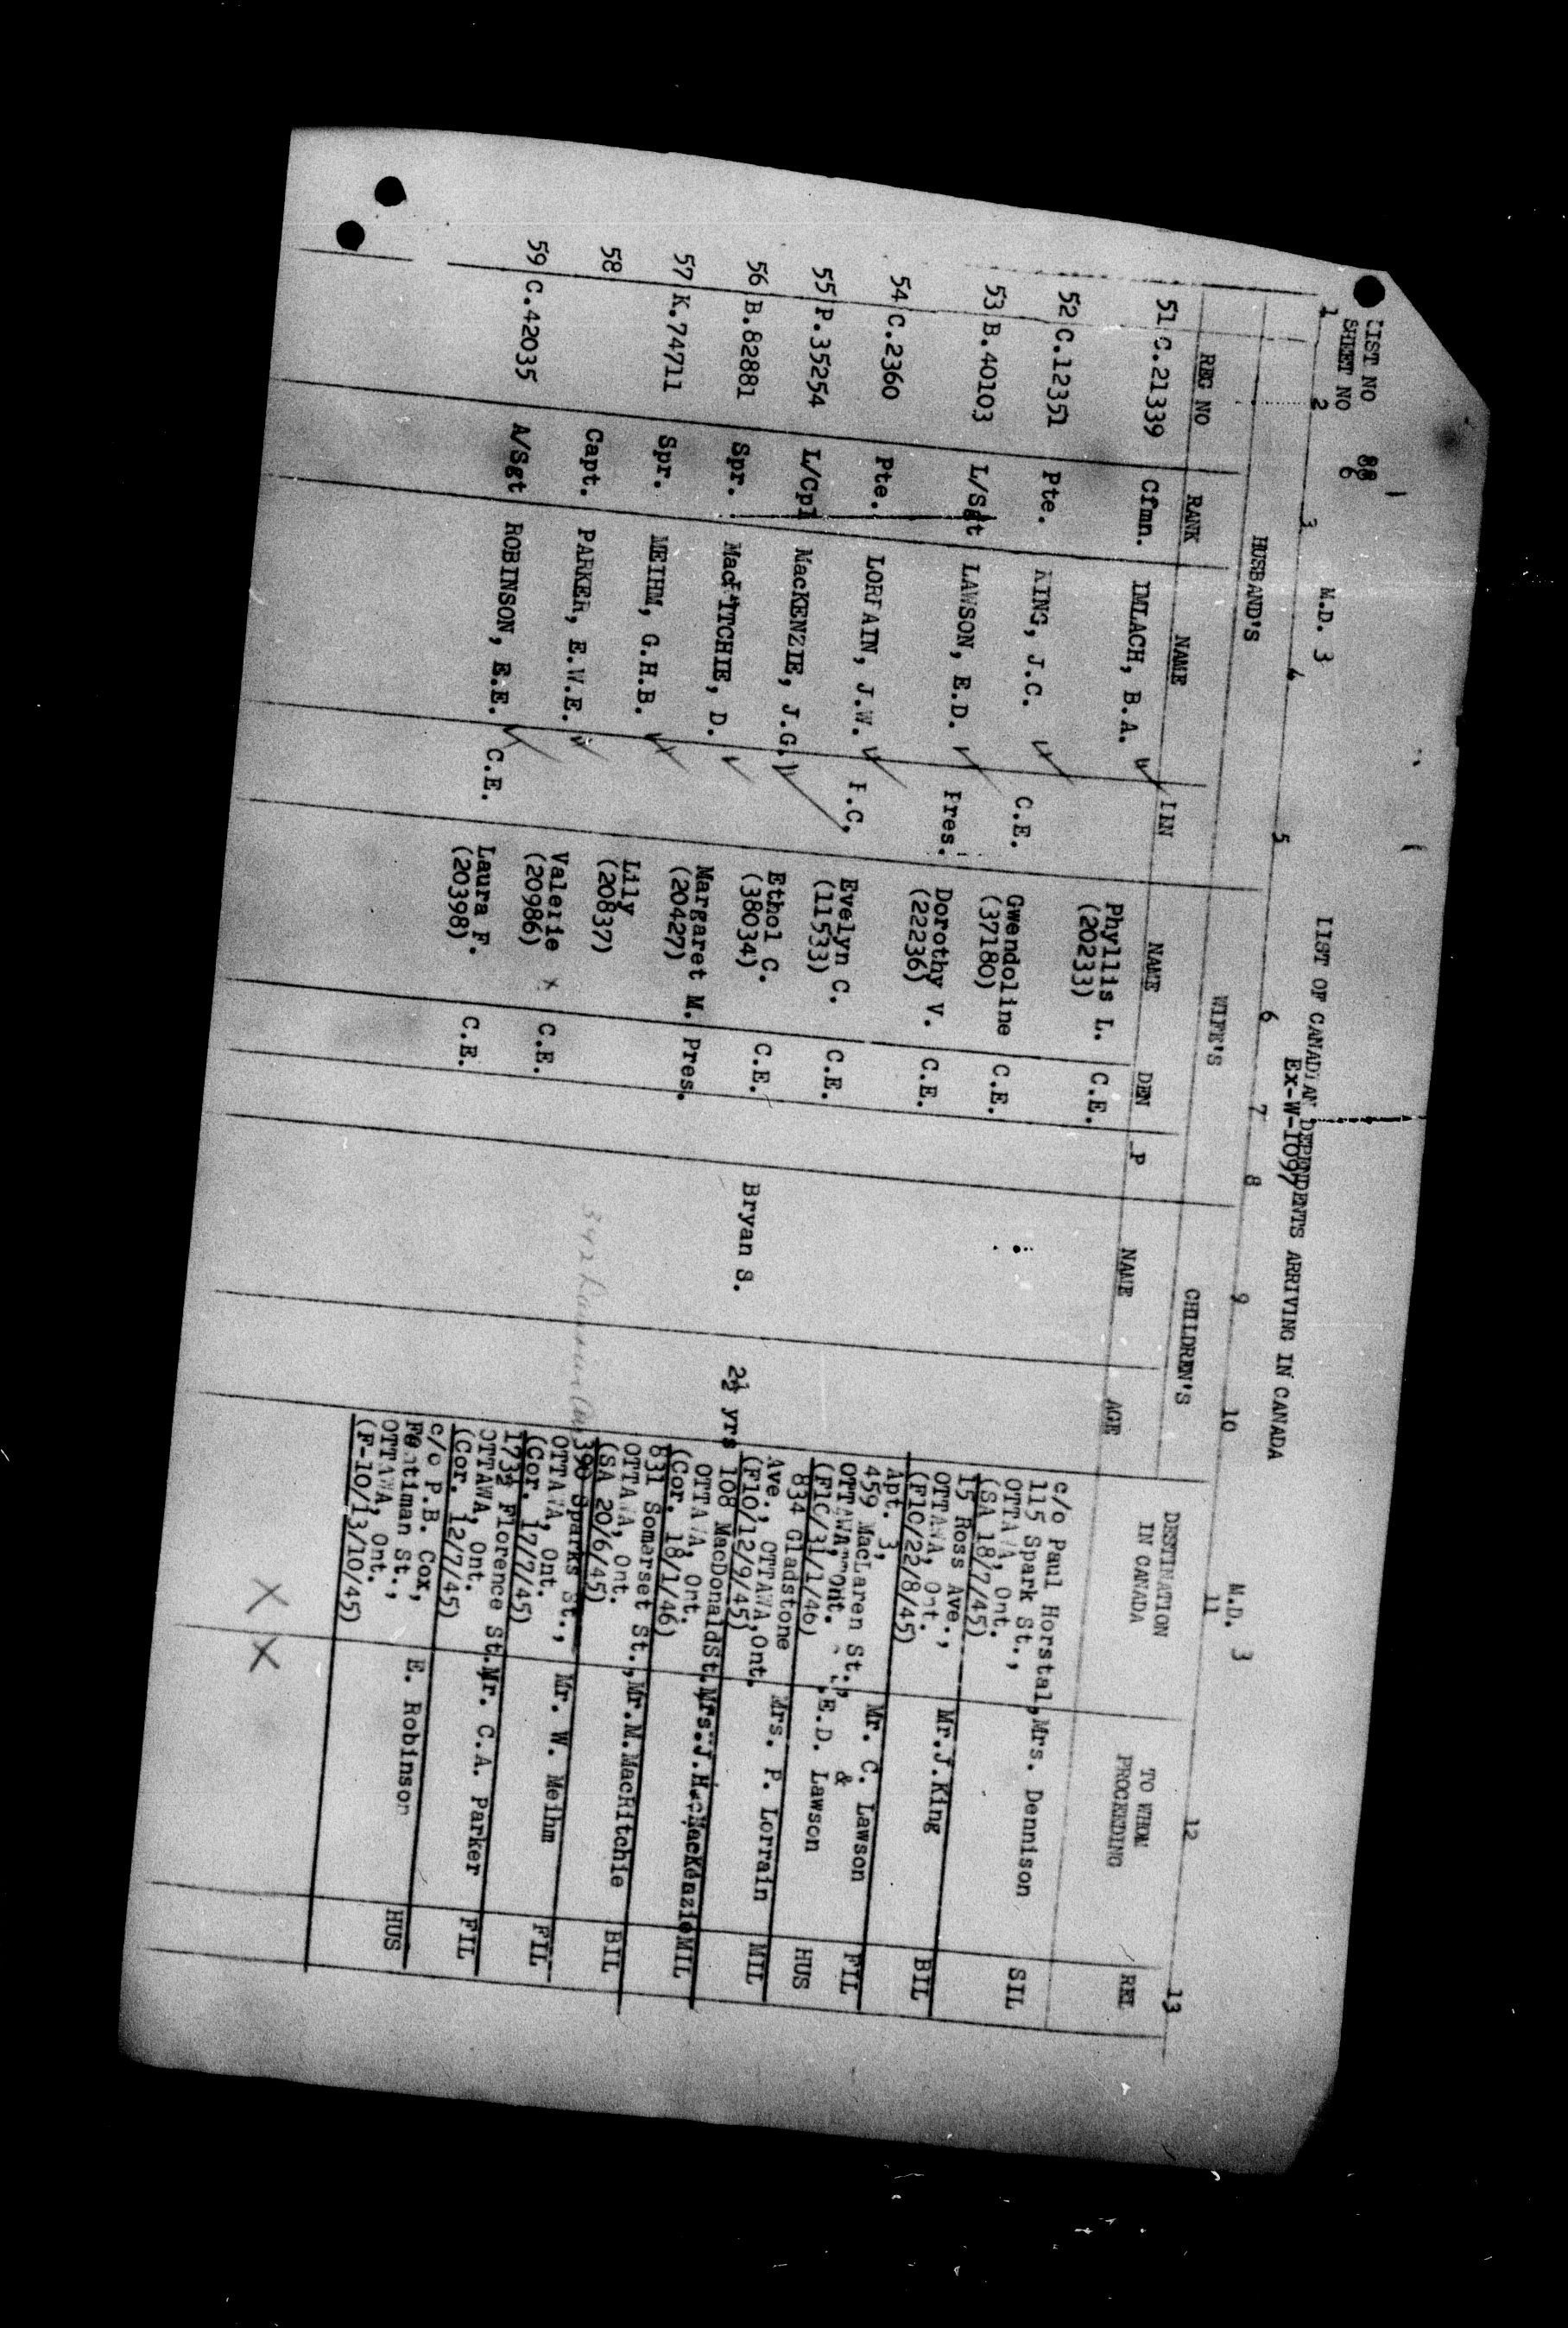 LIST NO 88
SHEET NO 6
M.D. 3
LIST OF CANADIAN DEPENDENTS ARRIVING IN CANADA
Ex-W-1097
M.D. 3
1 2 3 4 5 6 7 8 9 10 11 12 13
HUSBAND'S WIFE'S CHILDREN'S DESTINATION TO WHOM
REG NO RANK NAME NAME DEN P NAME AGE IN CANADA PROCEEDING REL
51 C.21339 Cfmn. IMLACH, B.A. Phyllis L. C.E. c/o Paul Horstal, Mrs. Dennison SIL
(20233) 115 Spark St.,
OTTAWA, Ont.
(SA 18/7/45)
52 C.12351 Pte. KING, J.C. C.E. Gwendoline C.E. 15 Ross Ave., Mr.J.King BIL
(37180) OTTAWA, Ont.
(F10/22/8/45)
53 B.40103 L/Sgt LAWSON, E.D. Pres. Dorothy V. C.E. Apt. 3,
(22236) 459 MacLaren St., Mr. C. Lawson FIL
OTTAWA, Ont. &
(F10/31/1/46) E.D. Lawson HUS
54 C.2360 Pte. LORRAIN, J.W. R.C. Evelyn C. C.E. 834 Gladstone Mrs. P. Lorrain MIL
(11533) Ave., OTTAWA, Ont.
(F10/12/9/45)
55 P.35254 L/Cpl MacKENZIE, J.G. Ethol C. C.E. Bryan S. 2½ yrs 108 MacDonald St. Mrs.J.H. MacKenzie MIL
(38034) OTTAWA, Ont.
(Cor. 18/1/46)
56 B.82881 Spr. MacRITCHIE, D. Margaret M. Pres. 831 Somerset St., Mr.M.MacRitchie BIL
(20427) OTTAWA, Ont.
(SA 20/6/45)
57 K.74711 Spr. MEIHM, G.H.B. Lily 390 Sparks St., Mr. W. Meihm FIL
(20837) 342 OTTAWA, Ont.
(Cor. 17/7/45)
58 Capt. PARKER, E.W.E. Valerie x C.E. 173½ Florence St. Mr. C.A. Parker FIL
(20986) OTTAWA, Ont.
(Cor. 12/7/45)
59 C.42035 A/Sgt ROBINSON, E.E. C.E. Laura F. C.E. c/o P.B. Cox, E. Robinson HUS
(20398) Fentiman St.,
OTTAWA, Ont.
(F-10/13/10/45)
X X